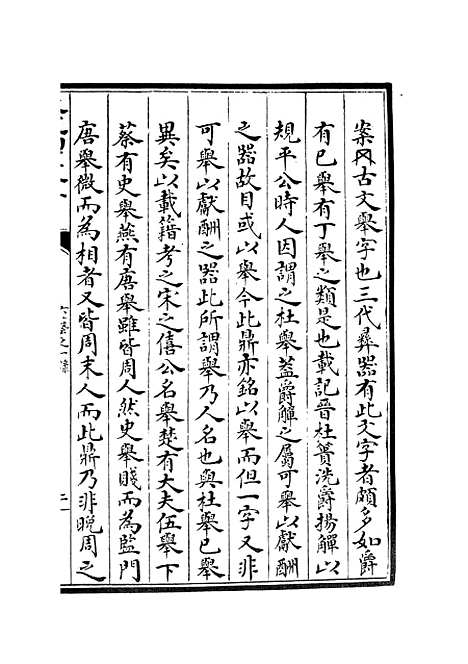 案𠔃古文舉字也三代彝器有此文字者頗多如爵
有已舉有丁舉之類是也載記晉杜蕢洗爵揚觶以
規平公時人因謂之杜舉蓋爵觶之屬可舉以獻酬
之器故目或以舉今此鼎亦銘以舉而但一字又非
可舉以獻酬之器此所謂舉乃人名也與杜舉已舉
異矣以載籍考之宋之僖公名舉楚有大夫伍舉下
蔡有史舉燕有唐舉雖皆周人然史舉賤而為監門
唐舉微而為相者又皆周末人而此鼎乃非晚周之